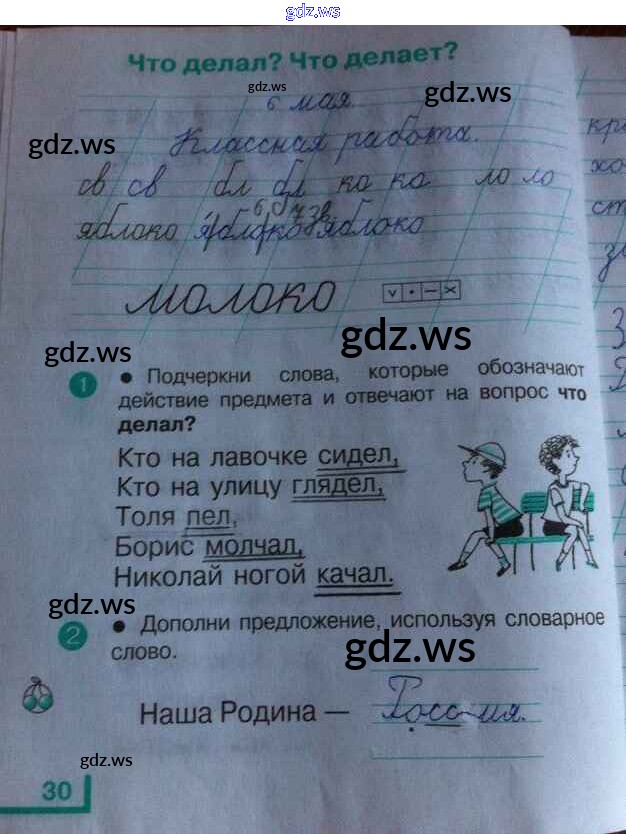 gdz.ws
Что делал? Что делает?
gdz.ws
6 мая.
gdz.ws
gdz.ws
Классная работа.
св св бл бл ко ко ло ло
6б, 7зв.
яблоко яблоко яблоко
молоко
gdz.ws
gdz.ws
1 • Подчеркни слова, которые обозначают
действие предмета и отвечают на вопрос что
делал?
Кто на лавочке сидел,
Кто на улицу глядел,
Толя пел,
Борис молчал,
Николай ногой качал.
gdz.ws
2 • Дополни предложение, используя словарное
слово.
gdz.ws
Наша Родина — Россия.
gdz.ws
30
gdz.ws